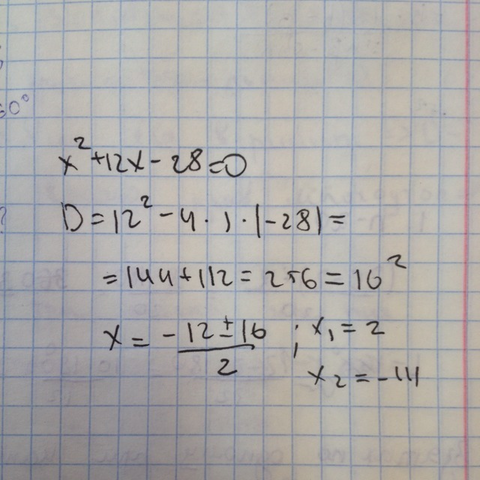 x²+12x-28=0
D=12²-4·1·(-28)=
=144+112=256=16²
x=(-12±16)/2 ; x₁=2
x₂=-14